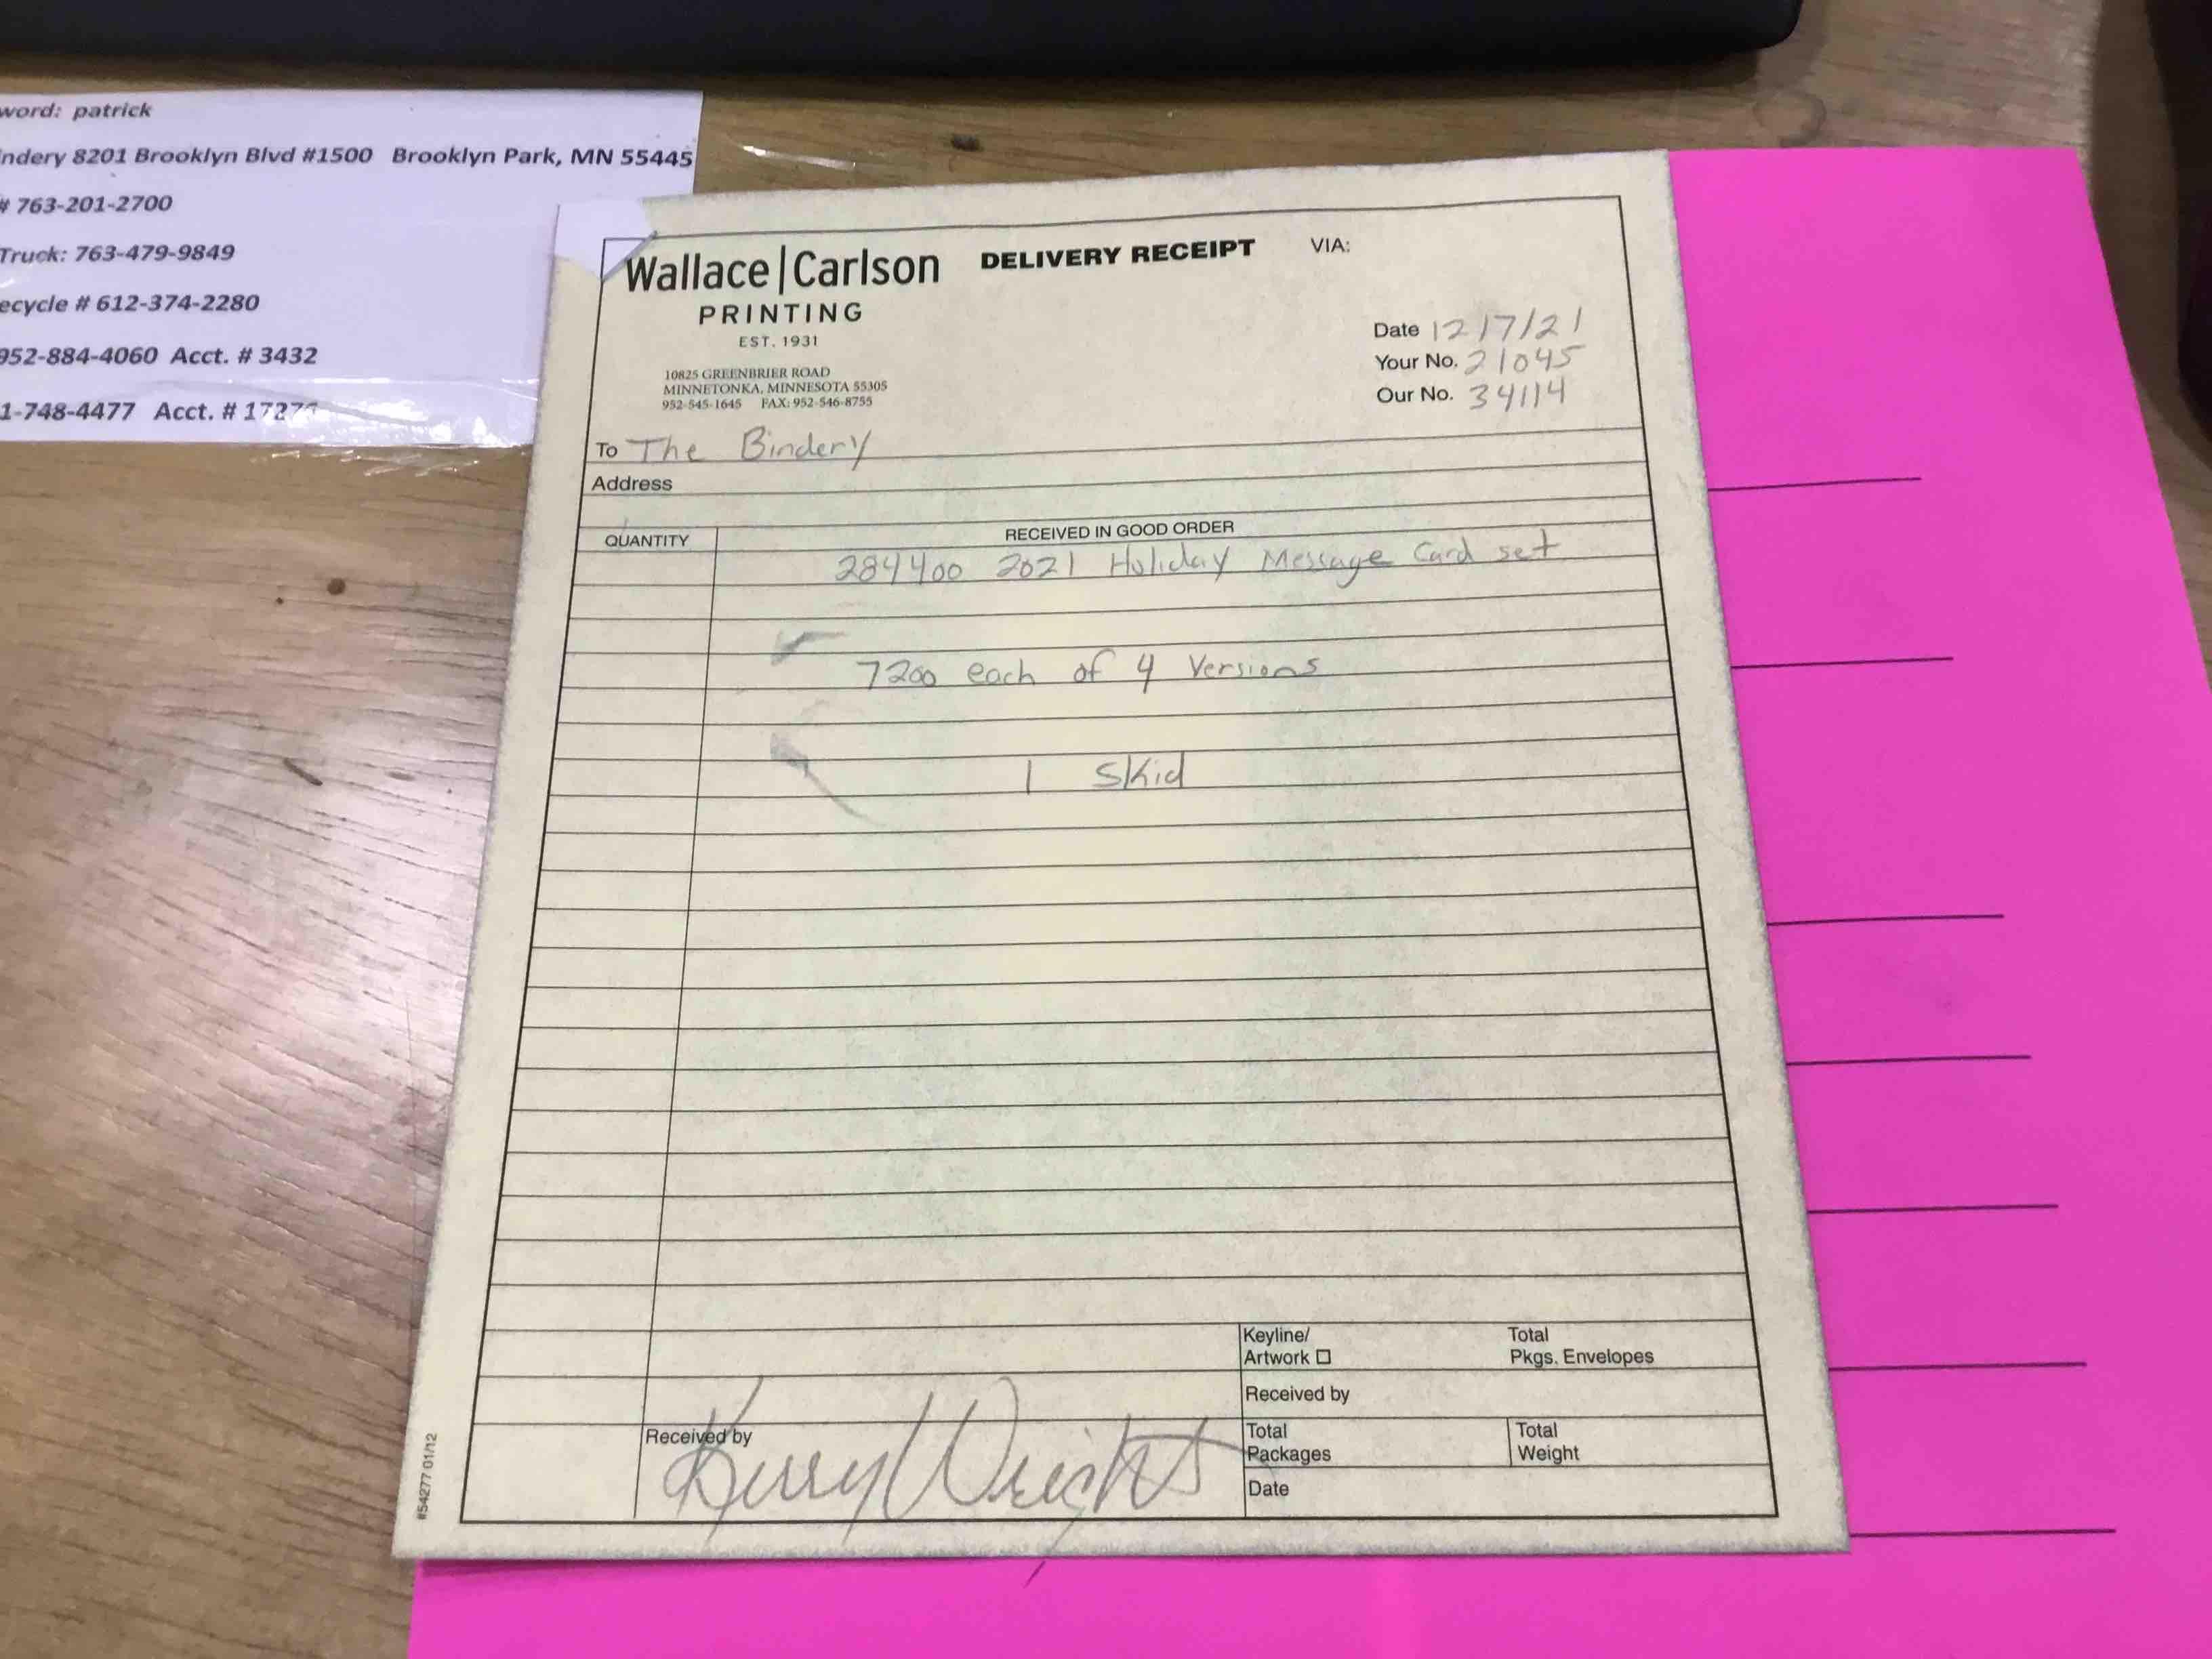 word: patrick
indery 8201 Brooklyn Blvd #1500 Brooklyn Park, MN 55445
# 763-201-2700
Truck: 763-479-9849
ecycle # 612-374-2280
952-884-4060 Acct. # 3432
1-748-4477 Acct. #
Wallace|Carlson
PRINTING
EST. 1931
10825 GREENBRIER ROAD
MINNETONKA, MINNESOTA 55305
952-545-1645 FAX: 952-546-8755
DELIVERY RECEIPT
VIA:
Date 12/7/21
Your No. 21045
Our No. 34114
To The Bindery
Address
QUANTITY
RECEIVED IN GOOD ORDER
284400 2021 Holiday Message Card set
7200 each of 4 Versions
1 Skid
Keyline/
Artwork
Total
Pkgs. Envelopes
Received by
Received by Kerry Wright
Total
Packages
Total
Weight
Date
#54277 01/12